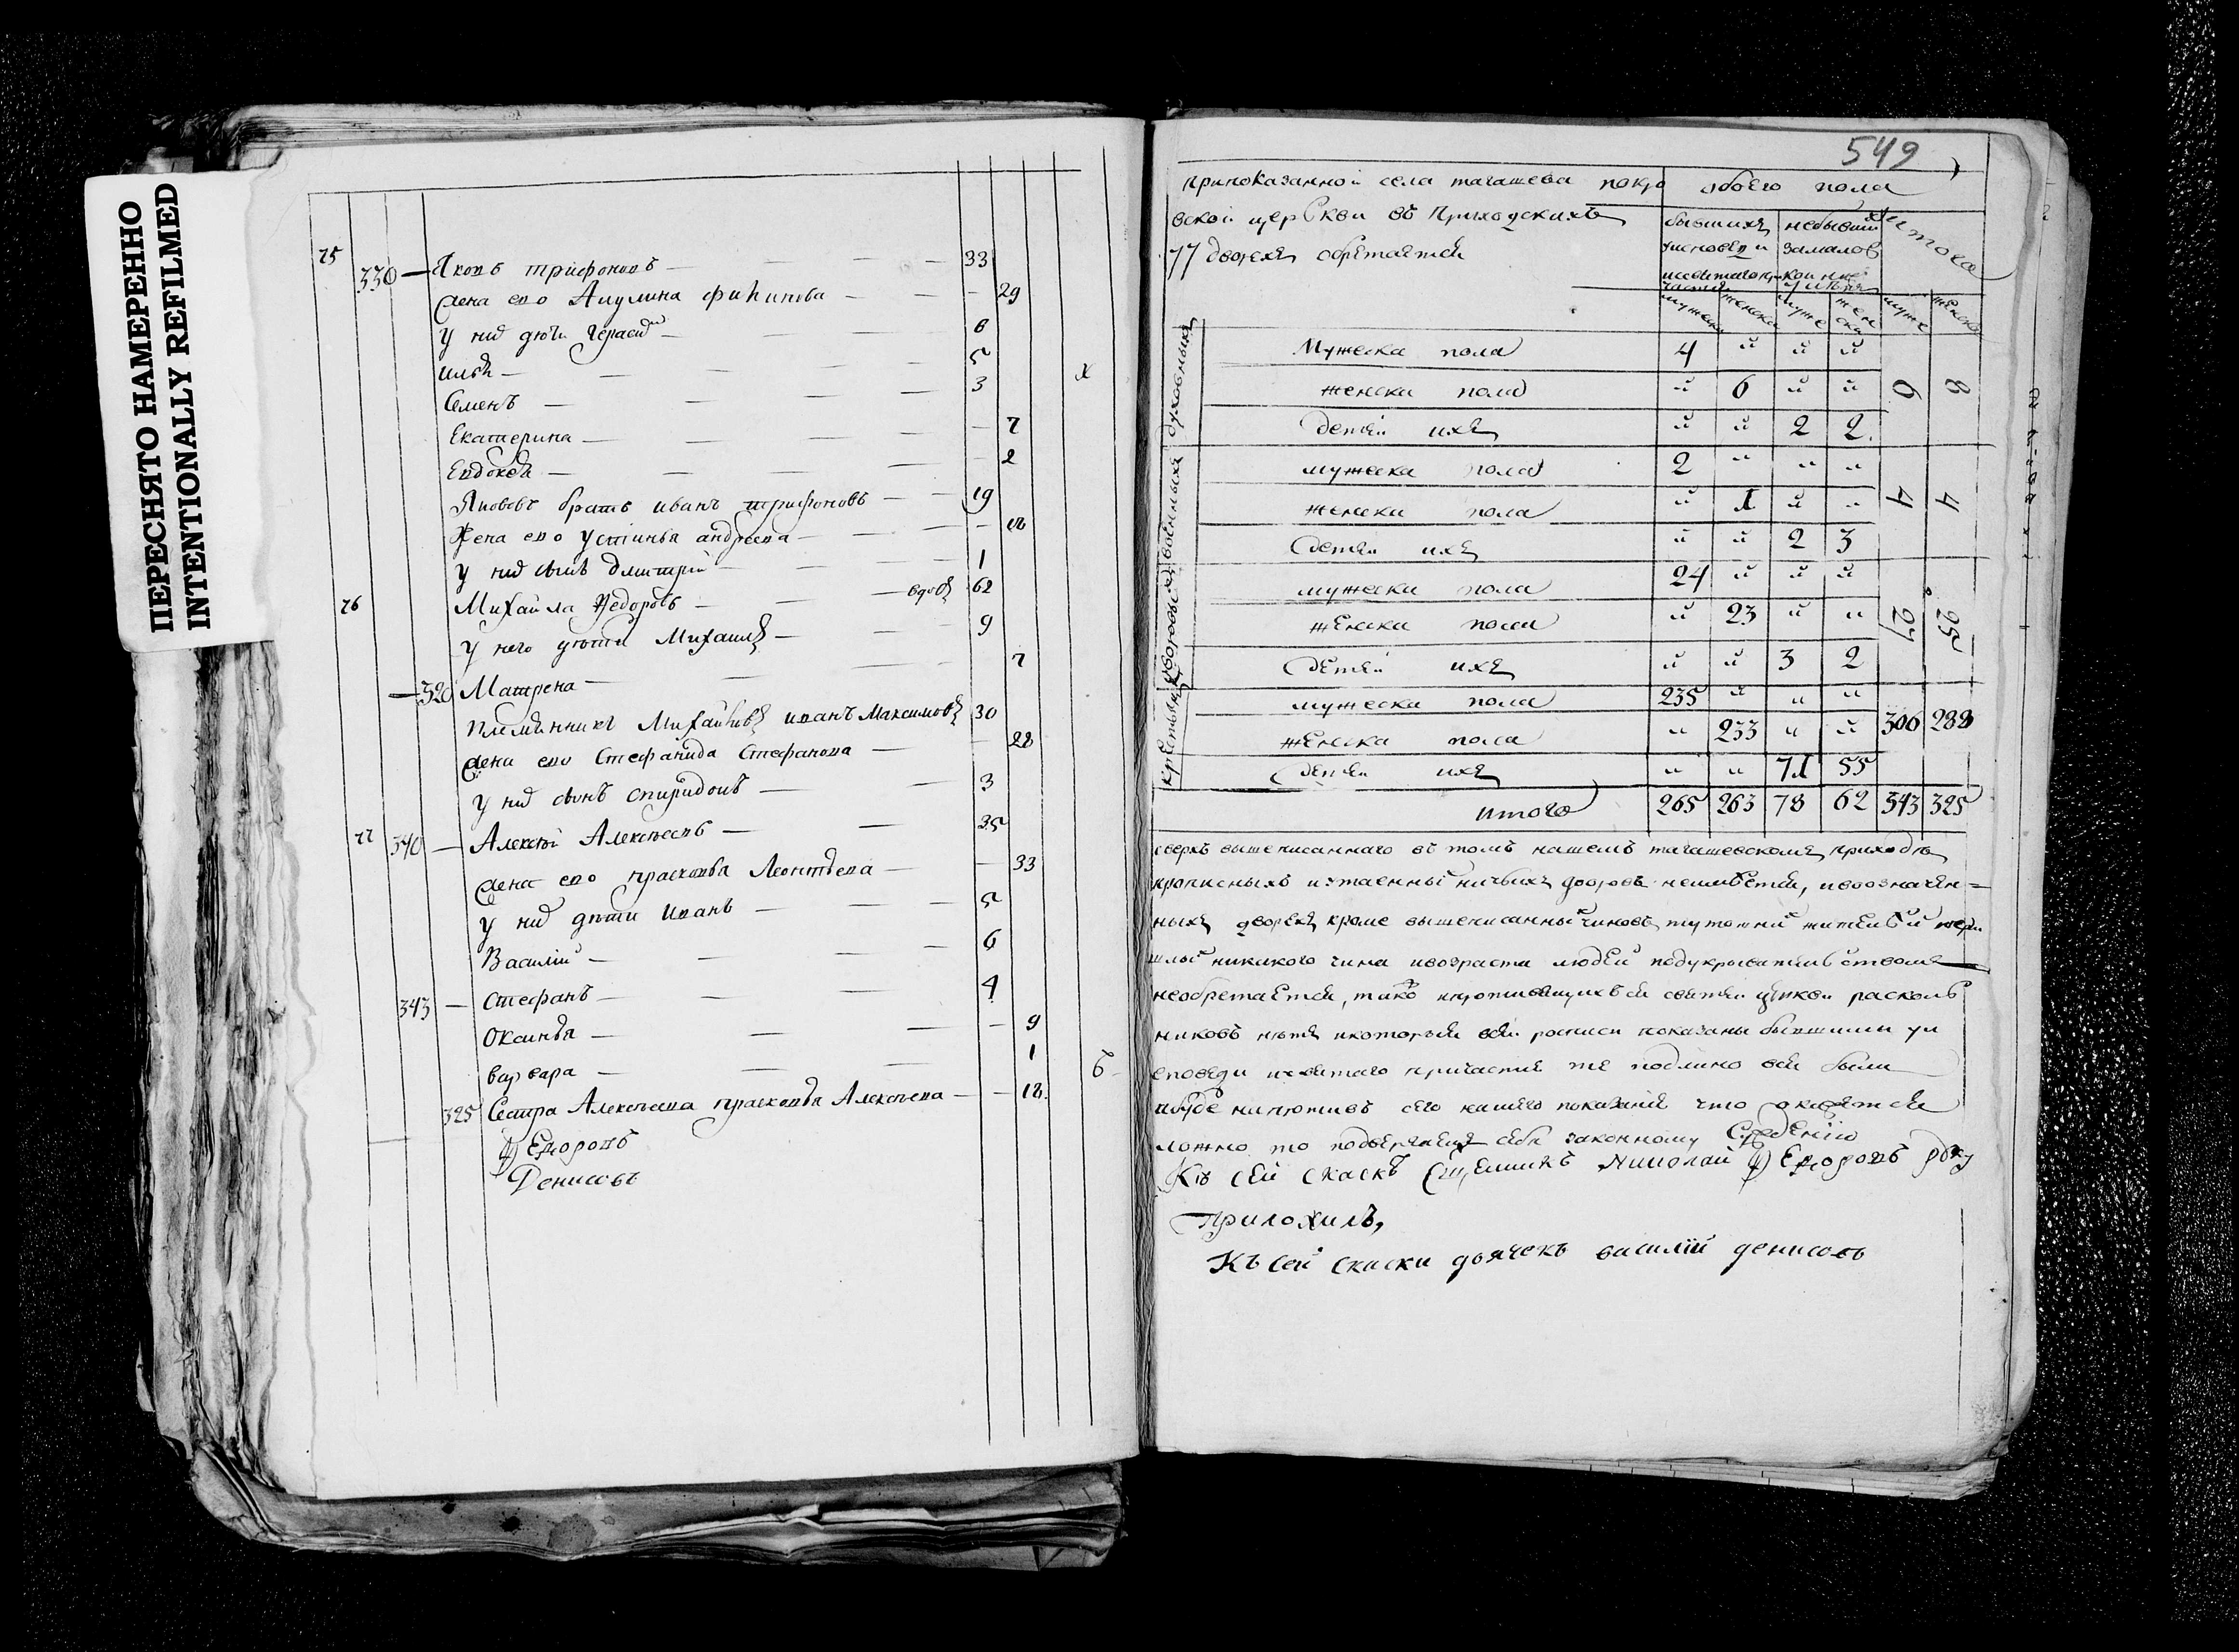 ПЕРЕСНЯТО НАМЕРЕННО
INTENTIONALLY REFILMED
75 330 — Яковъ трифоновъ — 33
жена ево Акулина филипова — 29
у них дѣти Герасим — 6
илья — 5
Семенъ — 3
Екатерина — 7
Евдокея — 2
Яковъ братъ иванъ трифоновъ — 19
Жена ево устинья андреева — 18
у них сынъ дмитрей — 1
76 Михайла Федоровъ — вдовъ 62
у него дѣти Михаилъ — 9
— 320 Матрена — 7
племянникъ Михайловъ иванъ Максимовъ 30
жена ево Стефанида Стефанова — 28
у них сынъ спиридонъ — 3
77 340 — Алексѣй Алексѣевъ — 35
жена ево прасковья Леонтьева — 33
у них дѣти Иванъ — 5
Василий — 6
343 — Стефанъ — 4
Оксинья — 9
варвара — 1
325 Сестра Алексѣева прасковья Алексѣева — 18
Ѳедоровъ
Денисовъ
х
б
549
при показанной села тагашева покро
вской церькви въ приходскихъ
77 дворехъ обретается
обоего пола
бывшихъ
исповеди
небывши
замалол
итого
мужеска женска муже женска муже женска
духовныхъ
Мужеска пола 4 " " "
женска пола " 6 " "
детей ихъ " " 2 2
6 8
военныхъ
мужеска пола 2 " " "
женска пола " 1 " "
детей ихъ " " 2 3
4 4
дворовыхъ
мужеска пола 24 " " "
женска пола " 23 " "
детей ихъ " " 3 2
27 25
крестьянъ
мужеска пола 235 " " "
женска пола " 233 " " 306 288
детей ихъ " " 71 55
итого 265 263 78 62 343 325
сверхъ вышеписаннаго въ томъ нашемъ тагашевскомъ приходѣ
прописныхъ и утаенных ничьихъ дворовъ неимѣется, ивоозначен-
ныхъ дворехъ кроме вышеписанных чиновъ тутошних жителей и
шлых никакого чина ивозраста людей подукрывательствомъ
необретается, тако святей церкви расколь
никовъ нѣтъ икоторыя всей росписи показаны бывшими уи
споведи исвятаго причастия те подлино все были
абуде напротивъ сего нашего показания что окажется
ложно то подвергаемъ себя законному суждению
Къ сей скаскѣ священникъ Николай Ѳедоровъ руку
приложилъ,
Къ сей скаски дьячекъ василий денисовъ